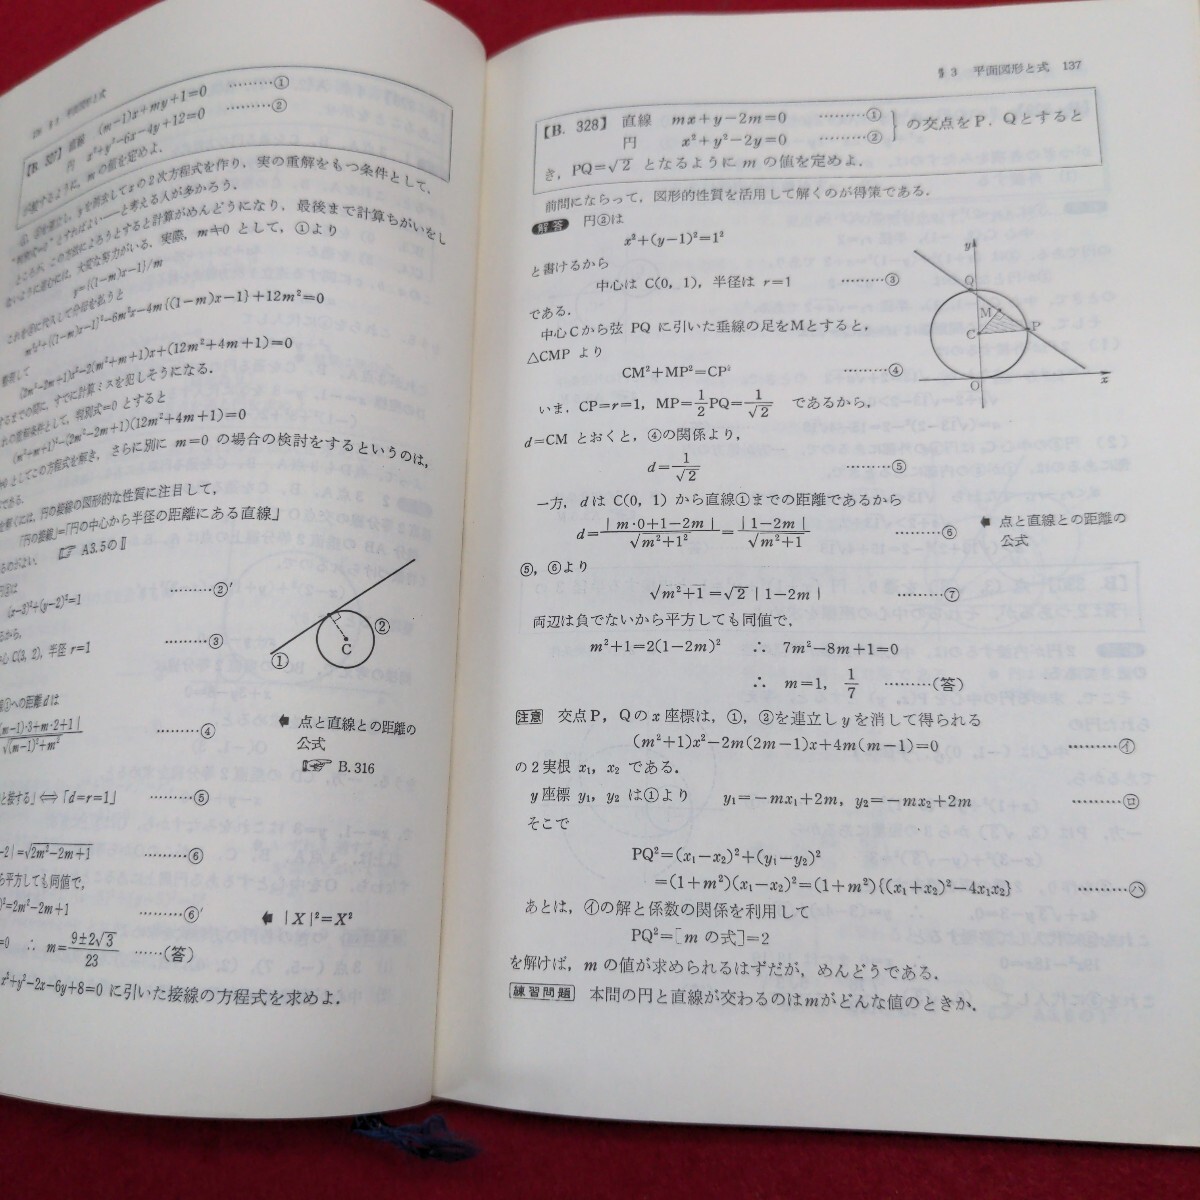 【B. 327】 直線 (m−1)x+my+1=0 ………①
円 x²+y²−6x−4y+12=0 ………②
が接するように, m の値を定めよ.
2次方程式を作り, 実の重解をもつ条件として,
とすればよい――と考える人が多かろう.
ところが, この方法によろうとすると計算がめんどうになり, 最後まで計算ちがいをし
ないように進むには, 大変な努力がいる. 実際, m≠0 として, ①より
y={(1−m)x−1}/m
これを②に代入して分母を払うと
m²x²+{(1−m)x−1}²−6m²x−4m{(1−m)x−1}+12m²=0
整理して
(2m²−2m+1)x²−2(m²+m+1)x+(12m²+4m+1)=0
するまでの間に, すでに計算ミスを犯しそうになる.
れの重解条件として, 判別式=0 とすると
(m²+m+1)²−(2m²−2m+1)(12m²+4m+1)=0
としてこの方程式を解き, さらに別に m=0 の場合の検討をするというのは,
である.
を解くには, 円の接線の図形的な性質に注目して,
「円の接線」=「円の中心から半径の距離にある直線」
☞ A3.5のⅡ
円②は
(x−3)²+(y−2)²=1 ………②′
C(3, 2), 半径 r=1 ………③
① ② C
への距離 d は
|(m−1)·3+m·2+1|
√(m−1)²+m² ………④
点と直線との距離の
公式
☞ B.316
接する」⟺「d=r=1」 ………⑤
−2|=√2m²−2m+1 ………⑥
平方しても同値で,
²=2m²−2m+1 ………⑥′
|X|²=X²
=0 ∴ m=(9±2√3)/23 ……(答)
x²+y²−2x−6y+8=0 に引いた接線の方程式を求めよ.
§3 平面図形と式 137
【B. 328】 直線 mx+y−2m=0 ………①
円 x²+y²−2y=0 ………② } の交点をP, Qとすると
き, PQ=√2 となるように m の値を定めよ.
前問にならって, 図形的性質を活用して解くのが得策である.
解答 円②は
x²+(y−1)²=1²
と書けるから
中心は C(0, 1), 半径は r=1 ………③
である.
中心Cから弦 PQ に引いた垂線の足をMとすると,
△CMP より
CM²+MP²=CP² ………④
y Q M C P O x
いま, CP=r=1, MP=1/2 PQ=1/√2 であるから,
d=CM とおくと, ④の関係より,
d=1/√2 ………⑤
一方, d は C(0, 1) から直線①までの距離であるから
d=|m·0+1−2m|/√m²+1²=|1−2m|/√m²+1 ………⑥
点と直線との距離の
公式
⑤, ⑥より
√m²+1=√2|1−2m| ………⑦
両辺は負でないから平方しても同値で,
m²+1=2(1−2m)² ∴ 7m²−8m+1=0
∴ m=1, 1/7 ………(答)
注意 交点P, Qの x 座標は, ①, ②を連立し y を消して得られる
(m²+1)x²−2m(2m−1)x+4m(m−1)=0 ………㋑
の2実根 x₁, x₂ である.
y 座標 y₁, y₂ は①より y₁=−mx₁+2m, y₂=−mx₂+2m ………㋺
そこで
PQ²=(x₁−x₂)²+(y₁−y₂)²
=(1+m²)(x₁−x₂)²=(1+m²){(x₁+x₂)²−4x₁x₂} ………㋩
あとは, ㋑の解と係数の関係を利用して
PQ²=[m の式]=2
を解けば, m の値が求められるはずだが, めんどうである.
練習問題 本問の円と直線が交わるのは m がどんな値のときか.